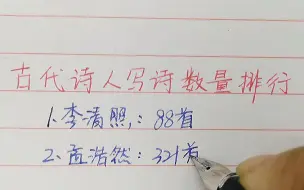 古代诗人写诗数量排行
1、李清照,：88首
2、孟浩然：321首